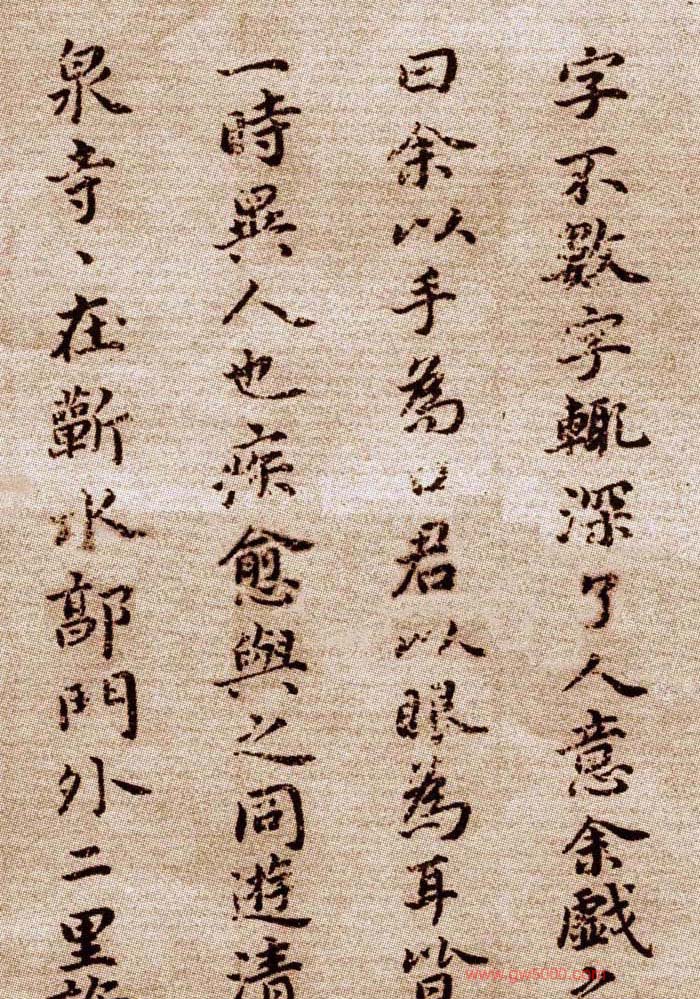 字不數字輒深了人意余戲之
曰余以手為口君以眼為耳皆
一時異人也疾愈與之同遊清
泉寺、在蘄水郭門外二里許
www.gw5000.com